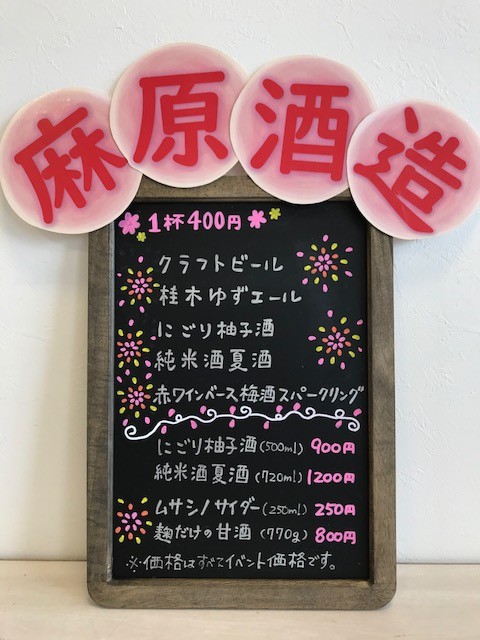 麻原酒造
1杯400円
クラフトビール
桂木ゆずエール
にごり柚子酒
純米酒夏酒
赤ワインベース梅酒スパークリング
にごり柚子酒(500ml) 900円
純米酒夏酒(720ml) 1200円
ムサシノサイダー(250ml) 250円
麹だけの甘酒(770g) 800円
※価格はすべてイベント価格です。